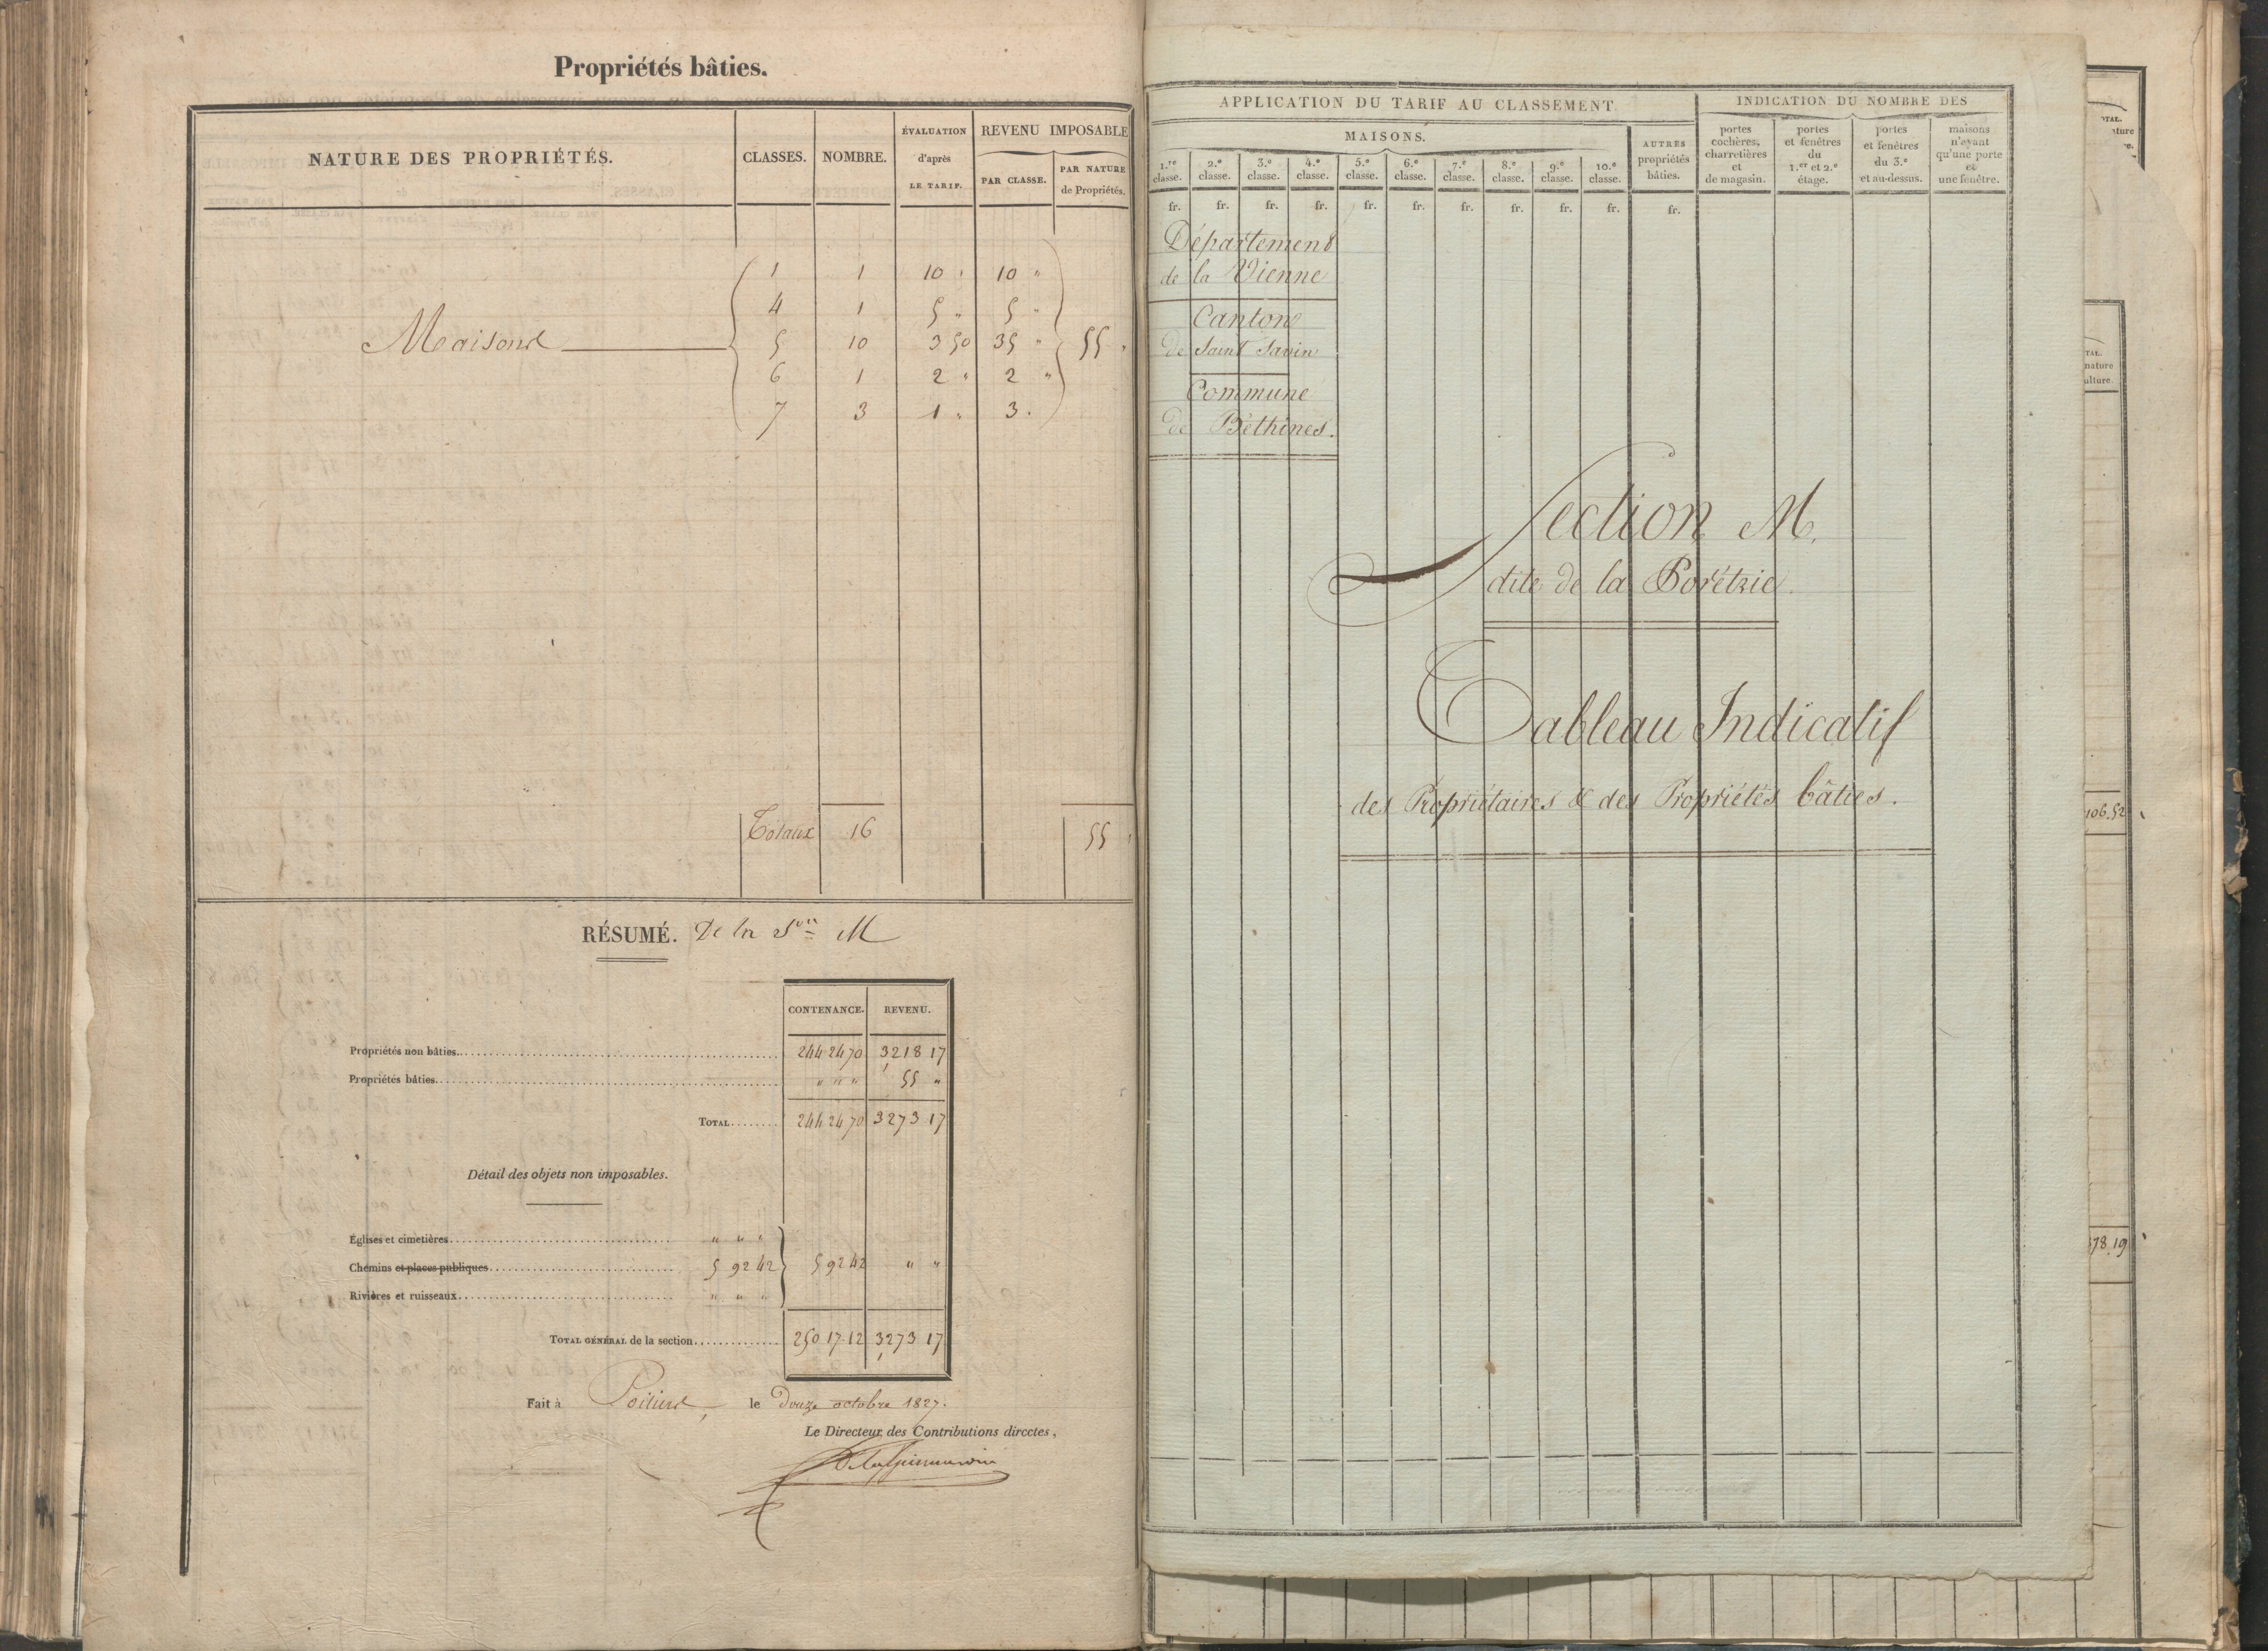 Propriétés bâties.
NATURE DES PROPRIÉTÉS. CLASSES. NOMBRE. ÉVALUATION d'après LE TARIF. REVENU IMPOSABLE PAR CLASSE. PAR NATURE de Propriétés.
1 1 10 " 10 "
4 1 5 " 5 "
Maisons 5 10 3 50 35 " 55 "
6 1 2 " 2 "
7 3 1 " 3 "
Totaux 16 55 "
RÉSUMÉ. De la Son M
CONTENANCE. REVENU.
Propriétés non bâties 244 24 70 3218 17
Propriétés bâties " " " 55 "
TOTAL 244 24 70 3273 17
Détail des objets non imposables.
Églises et cimetières " " "
Chemins et places publiques 5 92 42 5 92 42 " "
Rivières et ruisseaux " " "
TOTAL GÉNÉRAL de la section 250 17 12 3273 17
Fait à Poitiers, le Douze octobre 1827.
Le Directeur des Contributions directes,
APPLICATION DU TARIF AU CLASSEMENT
INDICATION DU NOMBRE DES
MAISONS.
1.re classe. 2.e classe. 3.e classe. 4.e classe. 5.e classe. 6.e classe. 7.e classe. 8.e classe. 9.e classe. 10.e classe.
AUTRES propriétés bâties.
portes cochères, charretières et de magasin.
portes et fenêtres du 1.er et 2.e étage.
portes et fenêtres du 3.e et au-dessus.
maisons n'ayant qu'une porte et une fenêtre.
fr. fr. fr. fr. fr. fr. fr. fr. fr. fr. fr.
Département
de la Vienne
Canton
de Saint Savin
Commune
de Béthines.
Section M.
dite de la Borétrie.
Tableau Indicatif
des Propriétaires & des Propriétés bâties.
TAL.
nature
ulture.
106.52
378.19